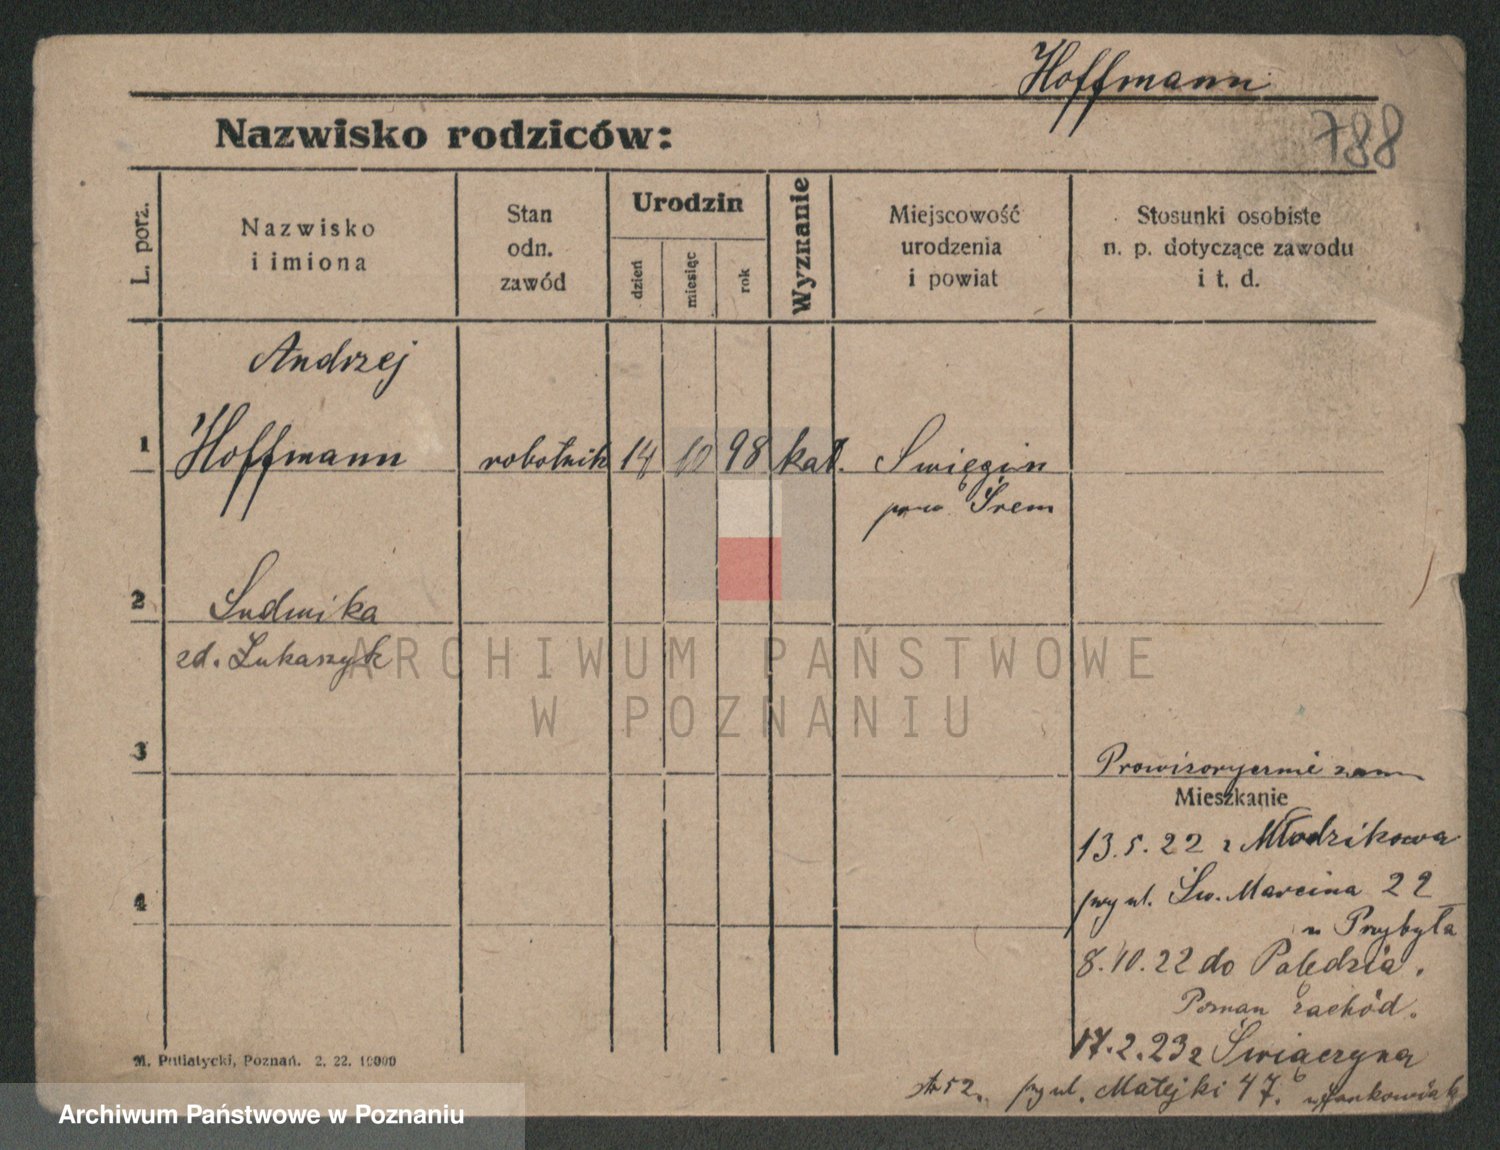 Hoffmann
Nazwisko rodziców:
788
L. porz.
Nazwisko
i imiona
Stan
odn.
zawód
Urodzin
dzień
miesiąc
rok
Wyznanie
Miejscowość
urodzenia
i powiat
Stosunki osobiste
n. p. dotyczące zawodu
i t. d.
Andrzej
1 Hoffmann robotnik 14 10 98 kat.
pow Śrem
2 Ludwika
zd. Łukaszyk
ARCHIWUM PAŃSTWOWE
W POZNANIU
3
Prowizorycznie zam
Mieszkanie
13.5.22 z Młodzikowa
przy ul. Św. Marcina 22
4
u Przybyła
8.10.22 do Palędzia.
Poznan zachód.
17.2.23 z
M. Putiatycki, Poznań. 2. 22. 10000
52. przy ul. Matejki 47.
Archiwum Państwowe w Poznaniu